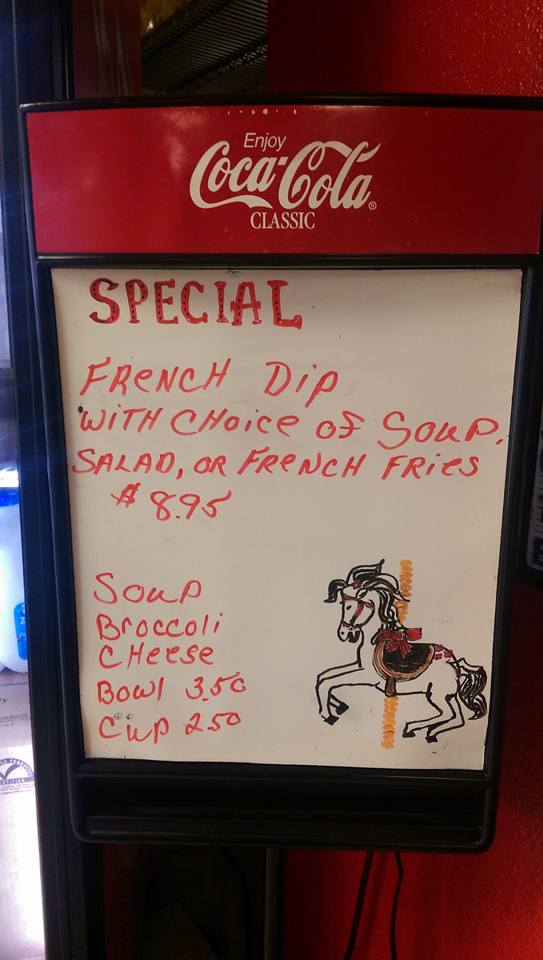 Enjoy
Coca-Cola®
CLASSIC
SPECIAL
FRENCH DiP
WITH CHOICE OF SOUP,
SALAD, OR FRENCH FRIES
$8.95
SOUP
BROCCOLi
CHEESE
BOWl 3.50
CUP 2.50